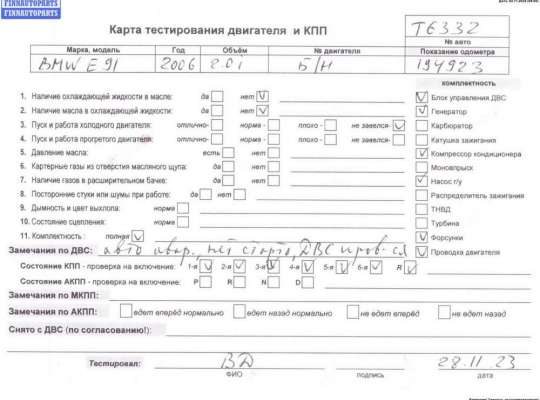 FINNAUTOPARTS
FINNAUTOPARTS
Карта тестирования двигателя и КПП
T6332
№ авто
Марка, модель Год Объём № двигателя Показание одометра
BMW E91 2006 2.0i Б/Н 194923
комплектность
1. Наличие охлаждающей жидкости в масле: да нет Блок управления ДВС
2. Наличие масла в охлаждающей жидкости: да нет Генератор
3. Пуск и работа холодного двигателя: отлично- норма - плохо - не завелся- Карбюратор
4. Пуск и работа прогретого двигателя: отлично- норма - плохо - не завелся- Катушка зажигания
5. Давление масла: есть нет Компрессор кондиционера
6. Картерные газы из отверстия масляного щупа: да нет Моновпрыск
7. Наличие газов в расширительном бачке: да нет Насос г/у
8. Посторонние стуки или шумы при работе: да нет Распределитель зажигания
9. Дымность и цвет выхлопа: норма ТНВД
10. Состояние сцепления: норма Турбина
11. Комплектность : полная Форсунки
Замечания по ДВС: авто авар., нет старта, ДВС пров-ся Проводка двигателя
Состояние КПП - проверка на включение: 1-я 2-я 3-я 4-я 5-я 6-я R
Состояние АКПП - проверка на включение: P R N D
Замечания по МКПП:
Замечания по АКПП: едет вперёд нормально едет назад нормально не едет вперёд не едет назад
Снято с ДВС (по согласованию!):
Тестировал: ВД 28.11.23
ФИО подпись дата